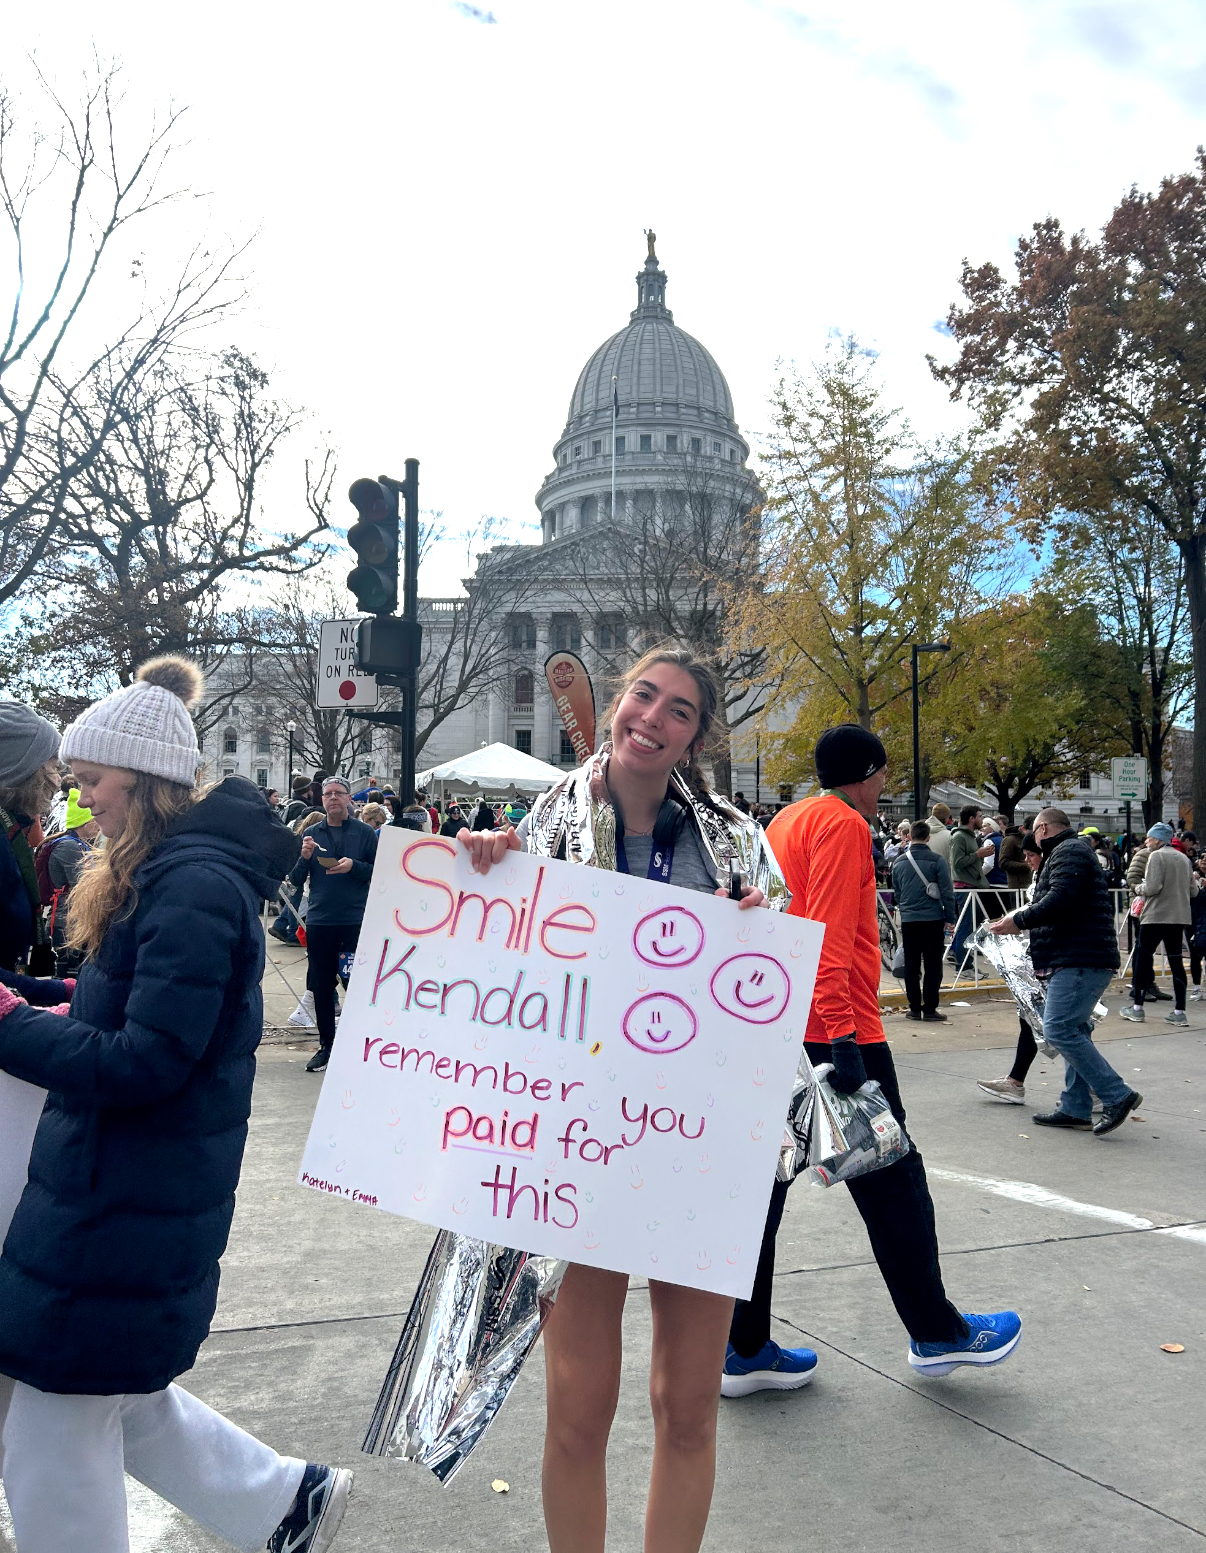 NO
TURN
ON RED
GEAR CHE
One
Hour
Parking
Smile
Kendall,
remember you
paid for
this
Katelyn + Emma